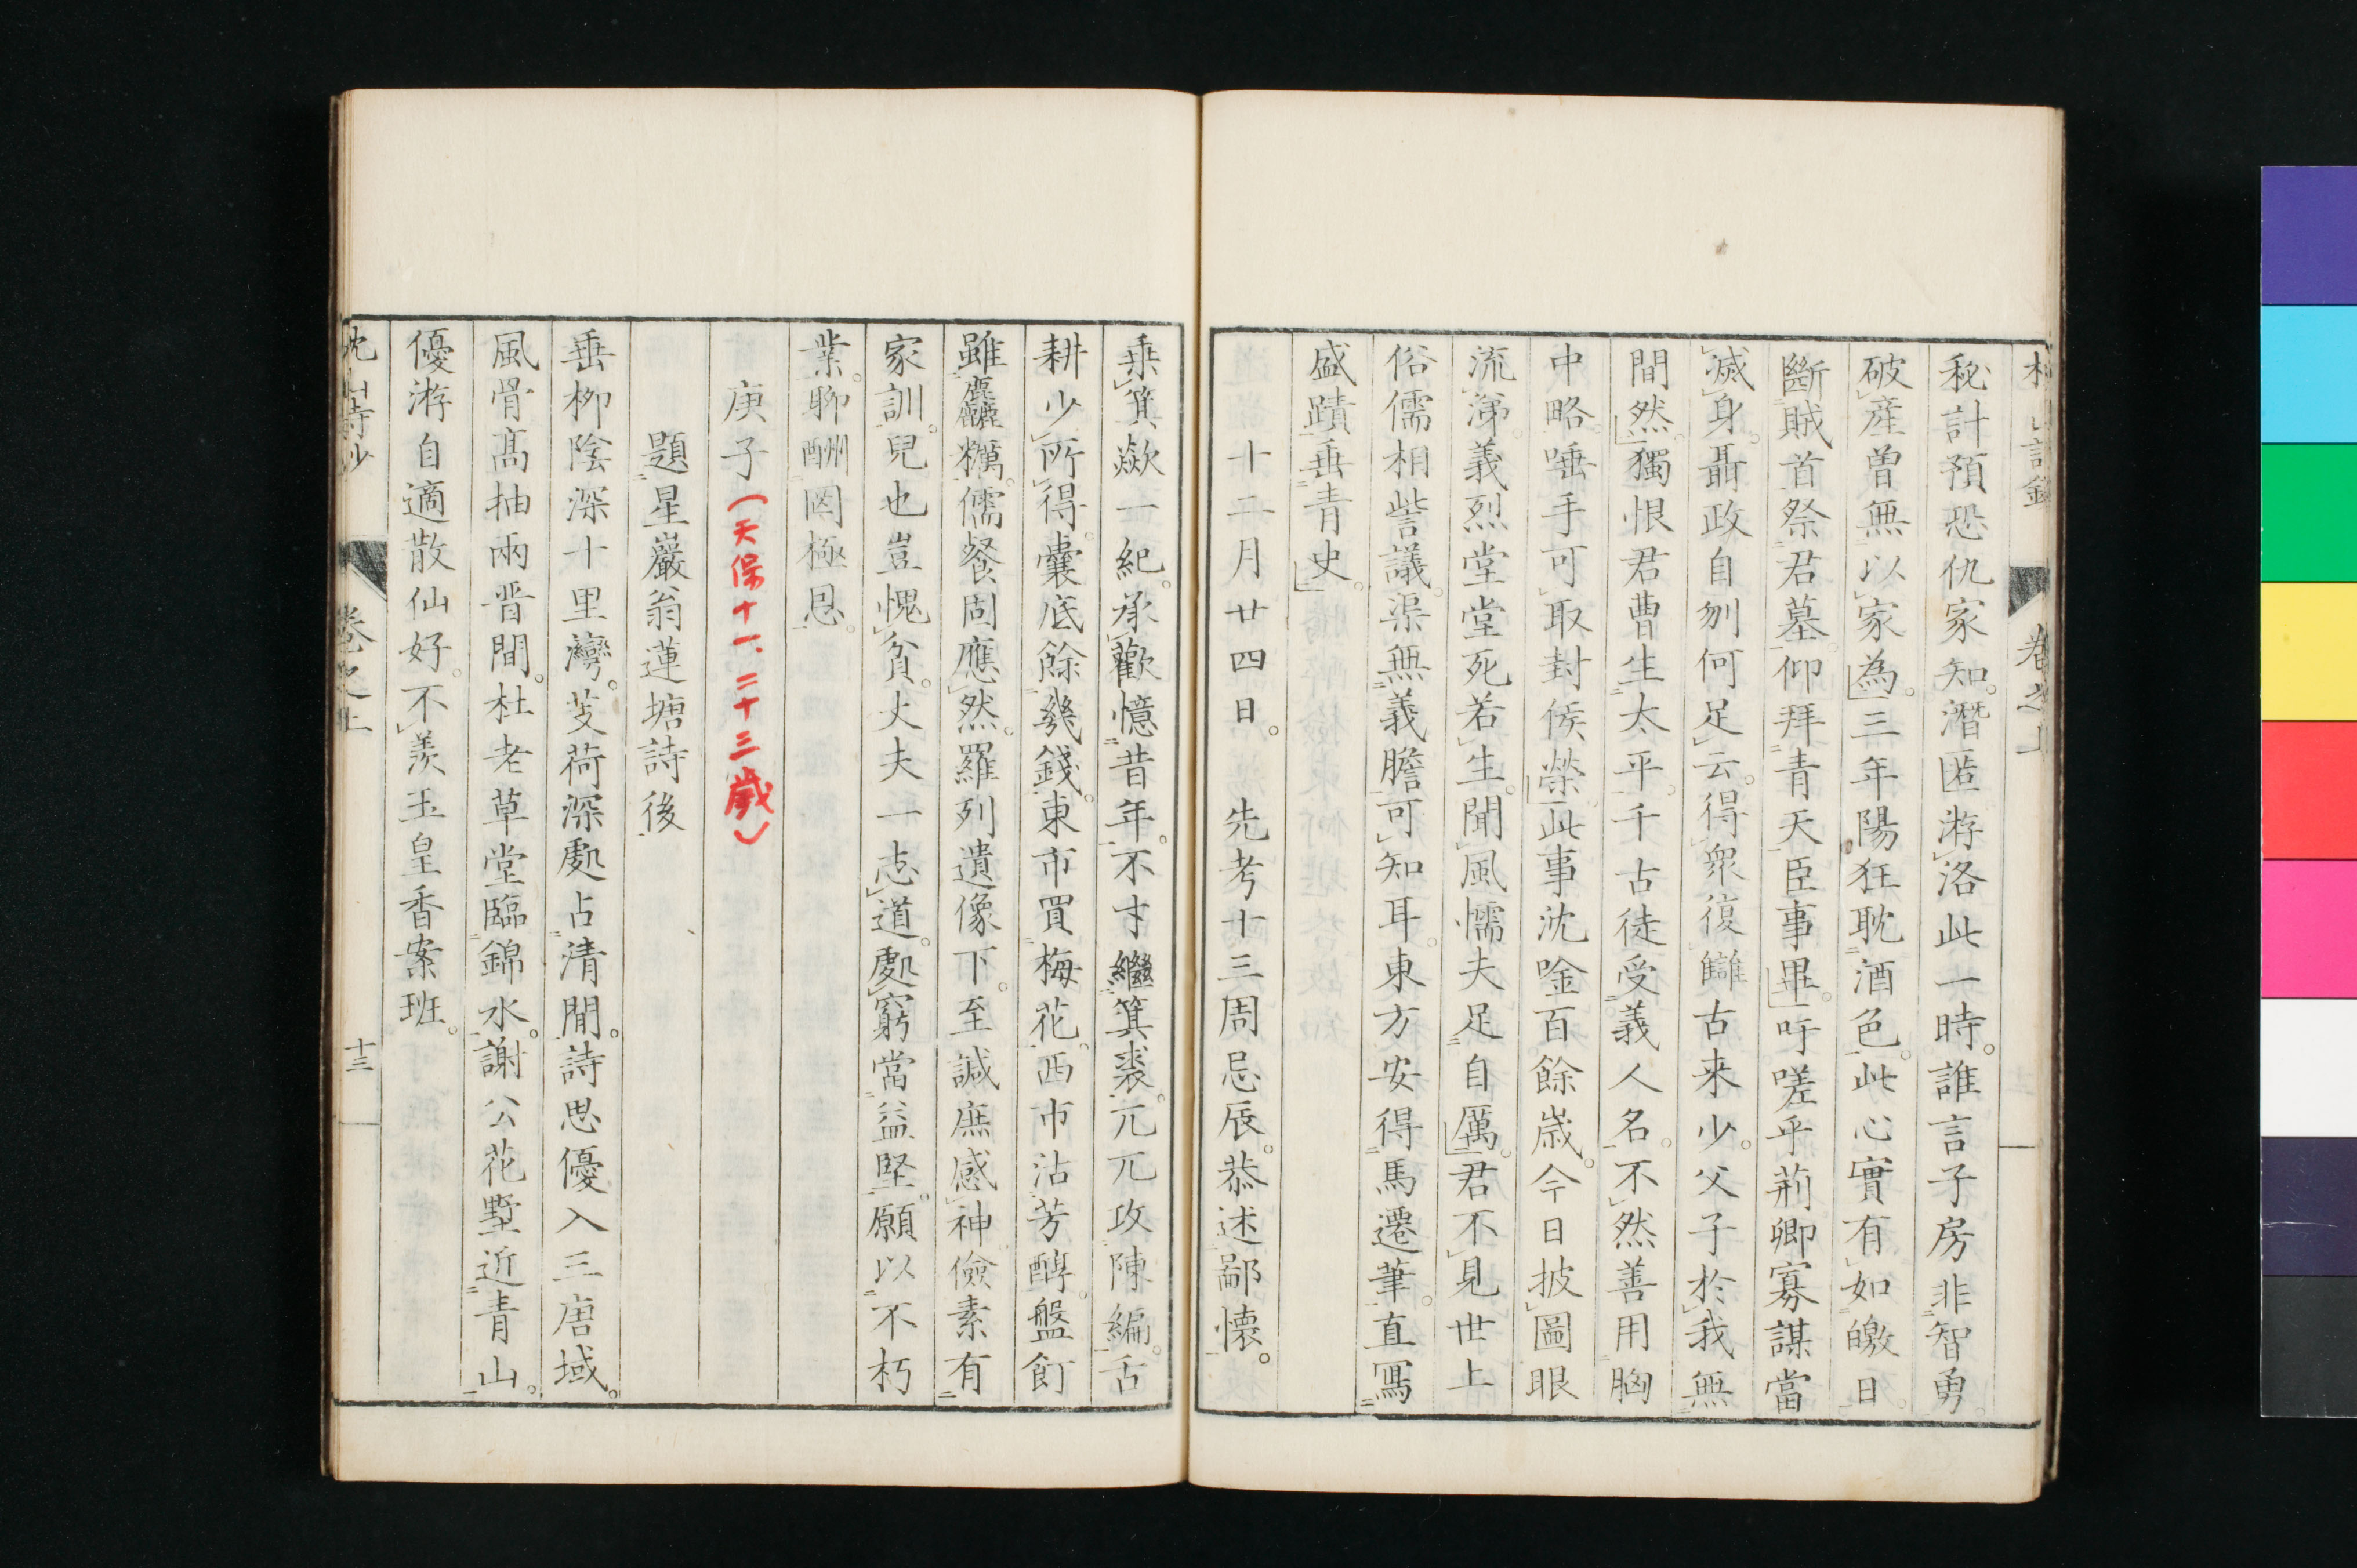 秘計預恐仇家知。潛匿游洛此一時。誰言子房非智勇。
破產曽無以家為。三年陽狂耽酒色。此心實有如皦日。
斷賊首祭君墓。仰拜青天臣事畢。吁嗟乎荊卿寡謀當
滅身。聶政自刎何足云。得衆復讎古来少。父子於我無
間然。獨恨君曹生太平。千古徒受義人名。不然善用胸
中略。唾手可取封侯榮。此事沈唫百餘歳。今日披圖眼
流涕。義烈堂堂死若生。聞風懦夫足自厲。君不見世上
俗儒相訾議。渠無義膽可知耳。東方安得馬遷筆。直寫
盛蹟垂青史。
十二月廿四日。先考十三周忌辰。恭述鄙懷。
乘箕歘一紀。承歡憶昔年。不才繼箕裘。兀兀攻陳編。舌
耕少所得。嚢底餘幾錢。東市買梅花。西市沽芳醪。盤飣
雖麤糲。儒餐固應然。羅列遺像下。至誠庶感神。儉素有
家訓。兒也豈愧貧。丈夫一志道。處窮當益堅。願以不朽
業。聊酬罔極恩。
庚子(天保十一、二十三歳)
題星巖翁蓮塘詩後
垂栁陰深十里灣。芰荷深處占清閒。詩思優入三唐域。
風骨髙抽兩晋間。杜老草堂臨錦水。謝公花墅近青山。
優游自適散仙好。不羨玉皇香案班。
卷之上
十三